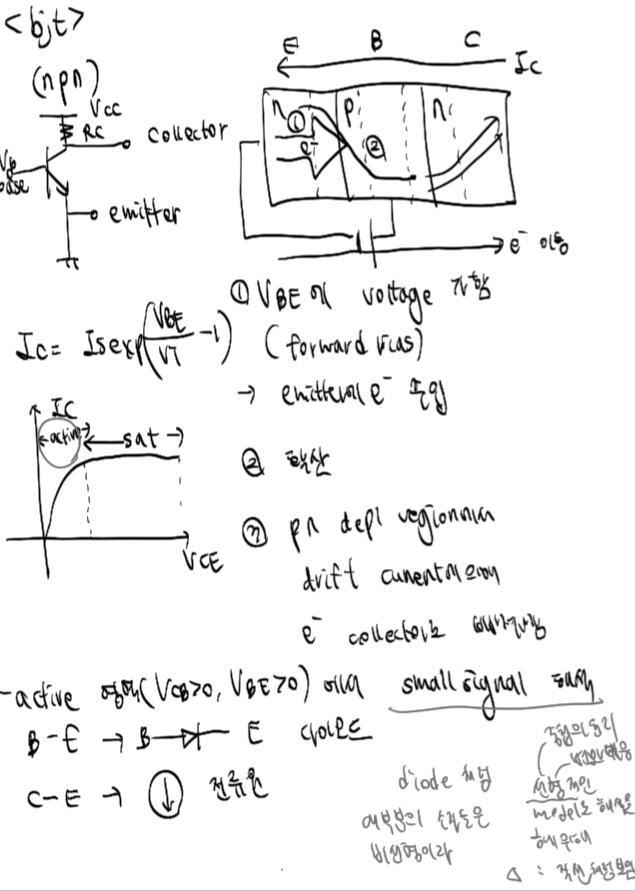 <bjt>
(npn)
Vcc
Rc
collector
base
emitter
E B C
Ic
n p n
①
e⁻
②
e⁻ 이동
① VBE에 voltage 가함
(forward bias)
Ic = Is exp(VBE/VT - 1)
→ emitter에 e⁻ 주입
Ic
active
sat
VCE
② 확산
③ pn depl region에서
drift current에 의해
e⁻ collector로
-active 영역(VCB>0, VBE>0)에서 small signal 해석
B-E → B E 다이오드
C-E → 전류원
중첩의 원리
diode 처럼
대부분의 소자들은
비선형이라
선형적인
model로 해석을
하기 위해
△ : 직선처럼 보임